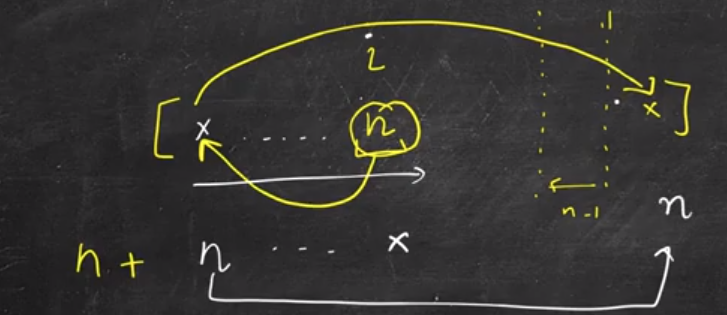 i
[ x ..... n x ]
n-1
n
n + n .... x